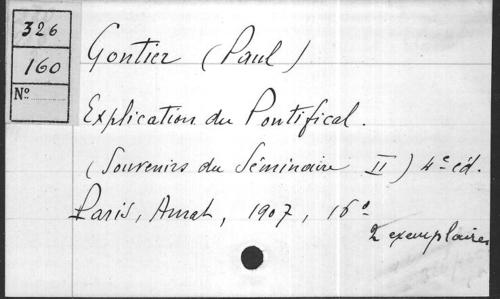 326
160
Nº
Gontier (Paul)
Explication du Pontifical.
(Souvenirs du Séminaire II) 4e éd.
Paris, Amat, 1907, 16º
2 exemplaires